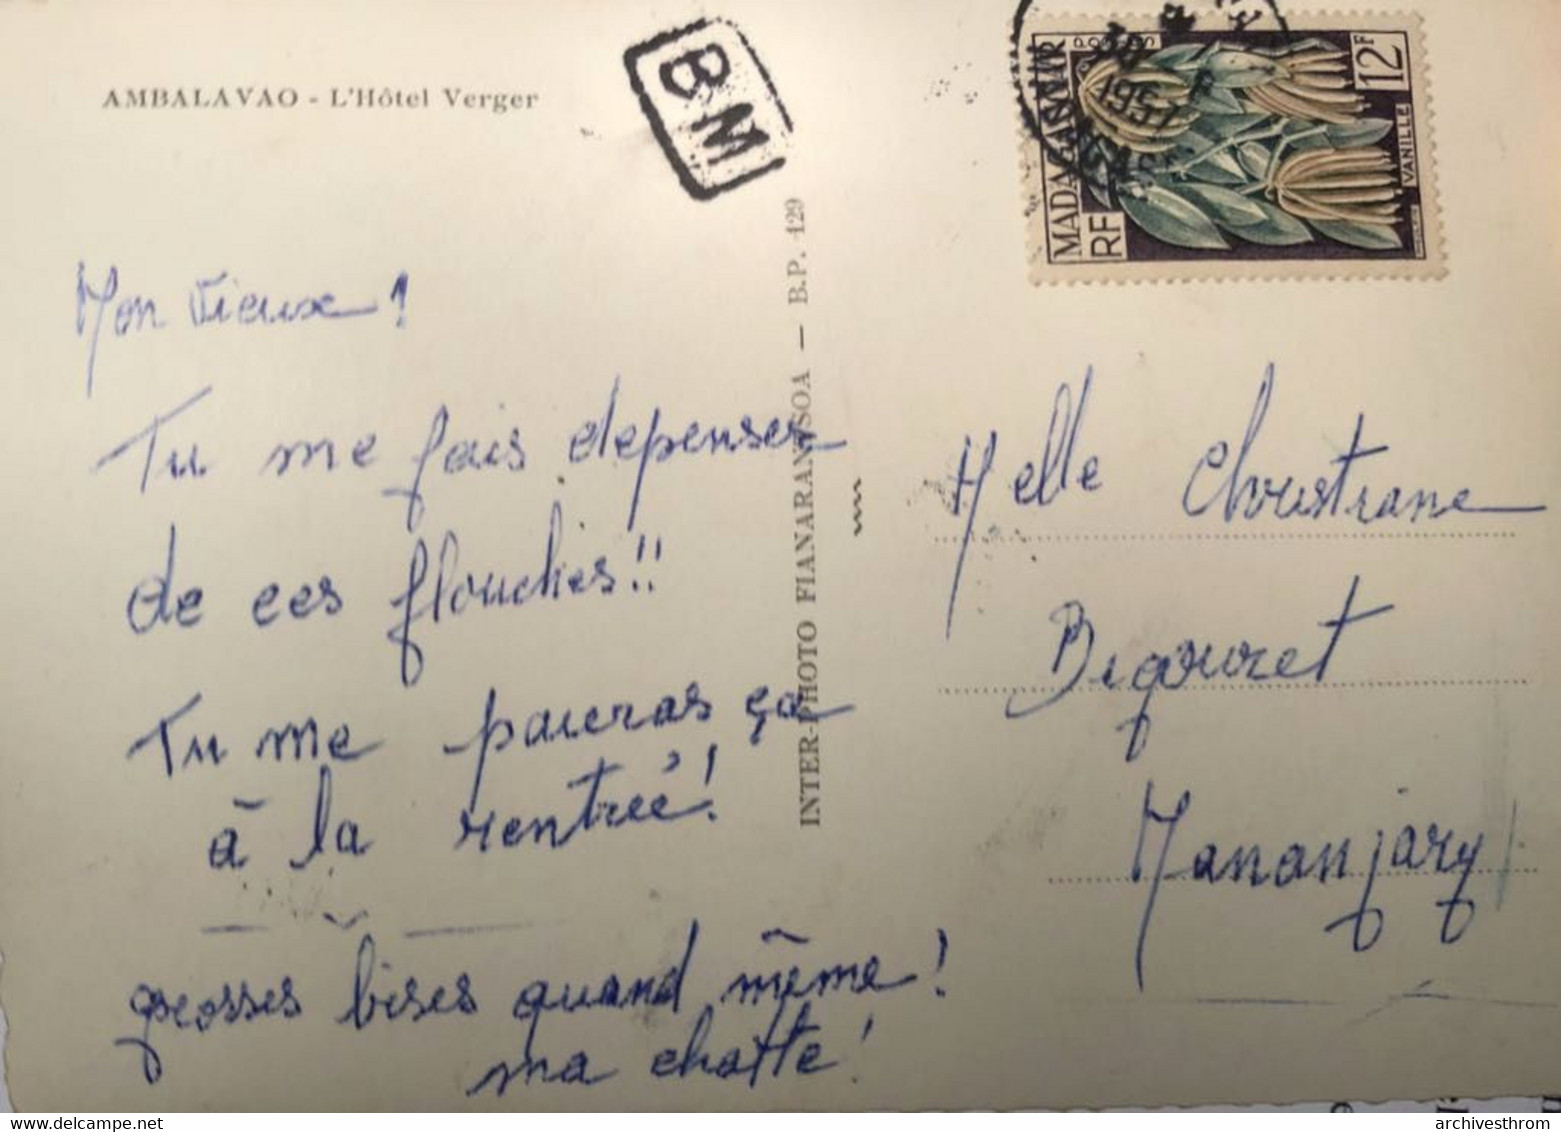 AMBALAVAO - L'Hôtel Verger
BM
1957
POSTES
12F
MADAGASCAR
RF
VANILLE
Mon vieux !
Tu me fais depenser
de ces flouchies !!
Tu me paieras ça
à la rentrée !
grosses bises quand même !
ma chatte !
INTER-PHOTO FIANARANTSOA — B.P. 129
Melle Christiane
Bigouret
Mananjary
archivesthrom